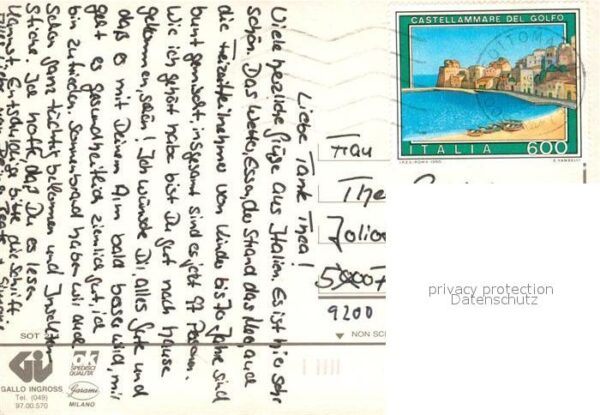 Liebe Tante Thea!
Viele herzliche Grüße aus Italien. Es ist hier sehr
schön. Das Wetter, Essen, der Strand das Meer, auch
die Teilnehmer von Kinder bis 70 Jahre sind
bunt gemischt, insgesamt sind es jetzt 97 Personen.
Wie ich gehört habe bist Du gut nach hause
gekommen, schön! Ich wünsche Dir alles Gute und
daß es mit Deinem Arm bald besser wird, mir
geht es gesundheitlich ziemlich gut, ich
bin zufrieden. Sonnenbrand haben wir auch
schon ganz tüchtig bekommen und Insekten
Stiche. Ich hoffe daß Du es lesen
kannst, Entschuldige bitte die Schrift
Frau
The
Jolio
9200
CASTELLAMMARE DEL GOLFO
ITALIA 600
I.P.Z.S. ROMA 1990
privacy protection
Datenschutz
SOT
NON SC
GALLO INGROSS
Tel. (049)
97.00.570
ok
SPEDISCI
QUALITA'
Garami
MILANO